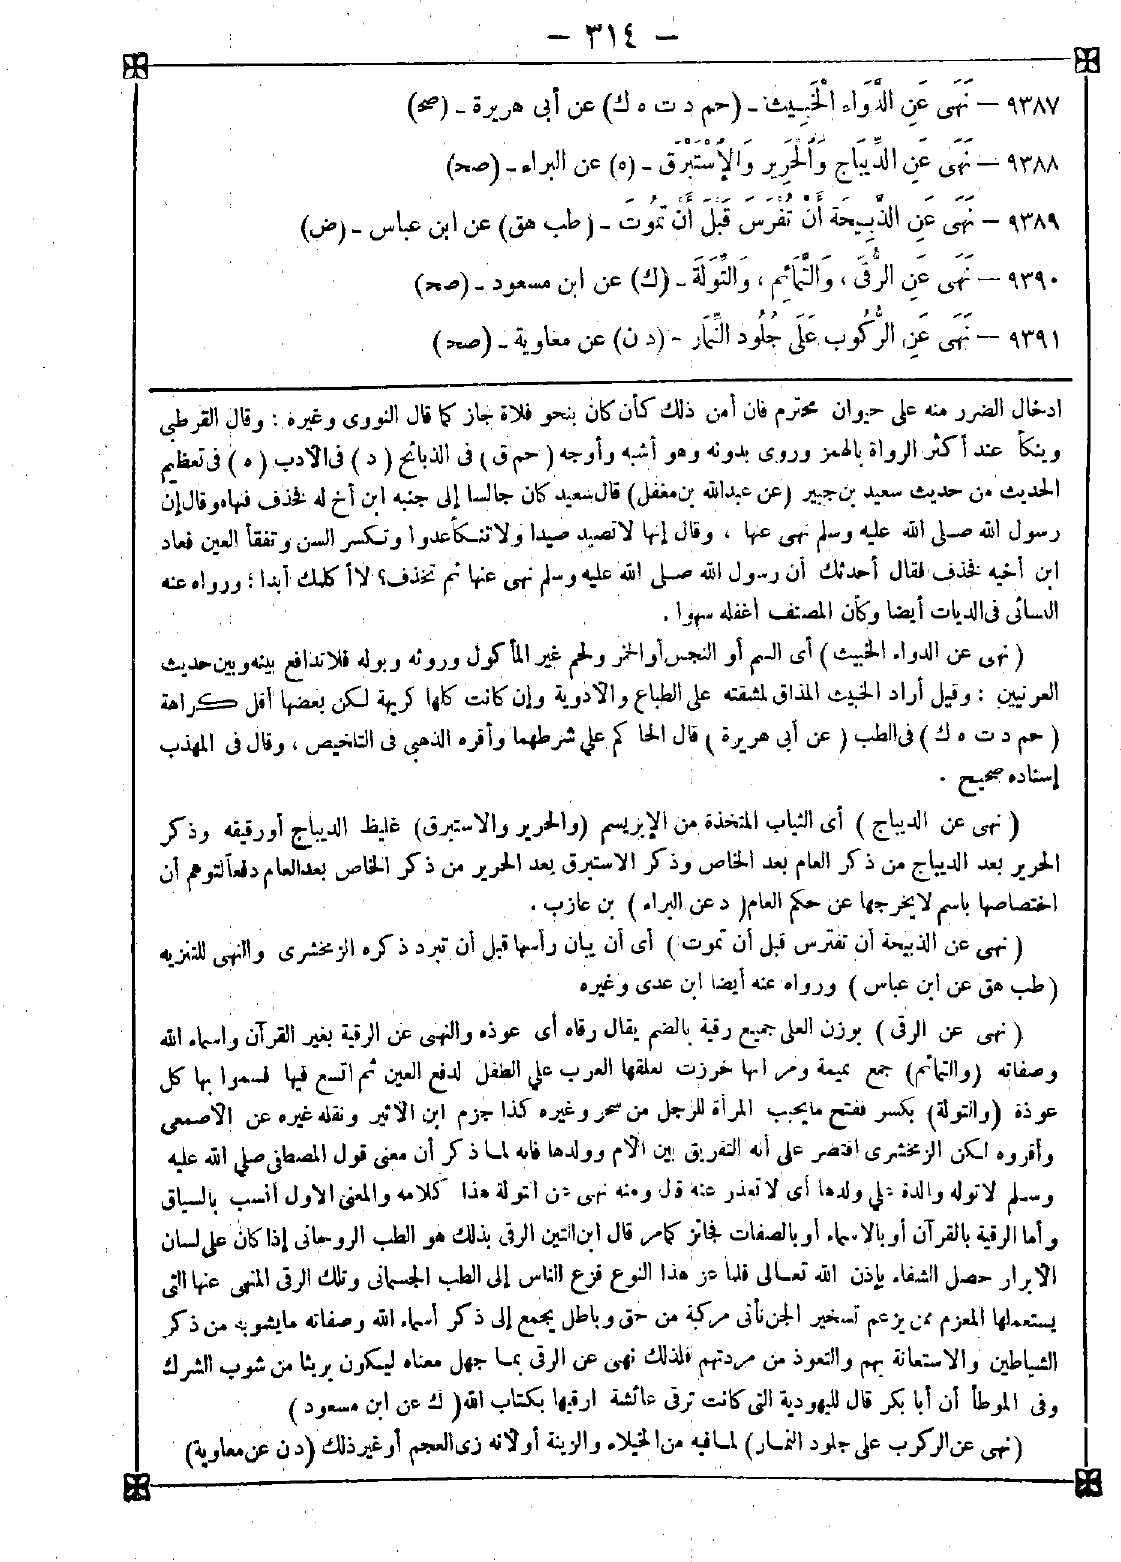 — ٣١٤ —
٩٣٨٧ — نَهَى عَنِ الدَّوَاء الْخَبِيث - (حم د ت ه ك) عن أبى هريرة - (صح)
٩٣٨٨ — نَهَى عَنِ الدِّيبَاجِ وَالْحَرِيرِ وَالْإِسْتَبْرَقِ - (ه) عن البراء - (صح)
٩٣٨٩ — نَهَى عَنِ الذَّبِيحَة أَنْ تُفْرَسَ قَبْلَ أَنْ تَمُوتَ - (طب هق) عن ابن عباس - (ض)
٩٣٩٠ — نَهَى عَنِ الرُّقَى ، وَالتَّمَائِمِ ، وَالتِّوَلَة - (ك) عن ابن مسعود - (صح)
٩٣٩١ — نَهَى عَنِ الرُّكُوبِ عَلَى جُلُودِ النِّمَارِ - (د ن) عن معاوية - (صح)
ادخال الضرر منه على حيوان محترم فان أمن ذلك كأن كان بنحو فلاة جاز كما قال النووى وغيره : وقال القرطبى
وينكأ عند أكثر الرواة بالهمز وروى بدونه وهو أشبه وأوجه (حم ق) فى الذبائح (د) فى الأدب (ه) فى تعظيم
الحديث من حديث سعيد بن جبير (عن عبدالله بن مغفل) قال سعيد كان جالسا إلى جنبه ابن أخ له فخذف فنهاه وقال إن
رسول الله صلى الله عليه وسلم نهى عنها ، وقال إنها لا تصيد صيدا ولا تنكأ عدوا وتكسر السن وتفقأ العين فعاد
ابن أخيه فخذف فقال أحدثك أن رسول الله صلى الله عليه وسلم نهى عنها ثم تخذف؟ لا أكلمك أبدا ؛ ورواه عنه
النسائى فى الديات أيضا وكأن المصنف أغفله سهوا .
(نهى عن الدواء الخبيث) أى السم أو النجس أو الخمر ولحم غير المأكول وروثه وبوله فلا تدافع بينه وبين حديث
العرنيين : وقيل أراد الخبث المذاق لمشقته على الطباع والأدوية وإن كانت كلها كريهة لكن بعضها أقل كراهة
(حم د ت ه ك) فى الطب (عن أبى هريرة) قال الحاكم على شرطهما وأقره الذهبى فى التلخيص ، وقال فى المهذب
إسناده صحيح .
(نهى عن الديباج) أى الثياب المتخذة من الإبريسم (والحرير والاستبرق) غليظ الديباج أو رقيقه وذكر
الحرير بعد الديباج من ذكر العام بعد الخاص وذكر الاستبرق بعد الحرير من ذكر الخاص بعد العام دفعاً لتوهم أن
اختصاصها باسم لا يخرجها عن حكم العام (د عن البراء) بن عازب .
(نهى عن الذبيحة أن تفترس قبل أن تموت) أى أن يبان رأسها قبل أن تبرد ذكره الزمخشرى والنهى للتنزيه
(طب هق عن ابن عباس) ورواه عنه أيضا ابن عدى وغيره
(نهى عن الرقى) بوزن العلى جميع رقية بالضم يقال رقاه أى عوذه والنهى عن الرقية بغير القرآن واسماء الله
وصفاته (والتمائم) جمع تميمة ومر انها خرزت تعلقها العرب على الطفل لدفع العين ثم اتسع فيها فسموا بها كل
عوذة (والتولة) بكسر ففتح ما يحبب المرأة للرجل من سحر وغيره كذا جزم ابن الأثير ونقله غيره عن الأصمعى
وأقروه لكن الزمخشرى اقتصر على أنه التفريق بين الأم وولدها فانه لما ذكر أن معنى قول المصطفى صلى الله عليه
وسلم لا توله والدة على ولدها أى لا تعذر عنه قال ومنه نهى عن التولة هذا كلامه والمعنى الأول أنسب بالسياق
وأما الرقية بالقرآن أو بالأسماء أو بالصفات فجائز كما مر قال ابن التين الرقى بذلك هو الطب الروحانى إذا كان على لسان
الأبرار حصل الشفاء بإذن الله تعالى فلما عز هذا النوع فزع الناس إلى الطب الجسمانى وتلك الرقى المنهى عنها التى
يستعملها المعزم ممن يزعم تسخير الجن تأتى مركبة من حق وباطل يجمع إلى ذكر أسماء الله وصفاته ما يشوبه من ذكر
الشياطين والاستعانة بهم والتعوذ من مردتهم فلذلك نهى عن الرقى بما جهل معناه ليكون بريئا من شوب الشرك
وفى الموطأ أن أبا بكر قال لليهودية التى كانت ترقى عائشة ارقيها بكتاب الله (ك عن ابن مسعود)
(نهى عن الركوب على جلود النمار) لما فيه من الخيلاء والزينة أو لأنه زى العجم أو غير ذلك (د ن عن معاوية)